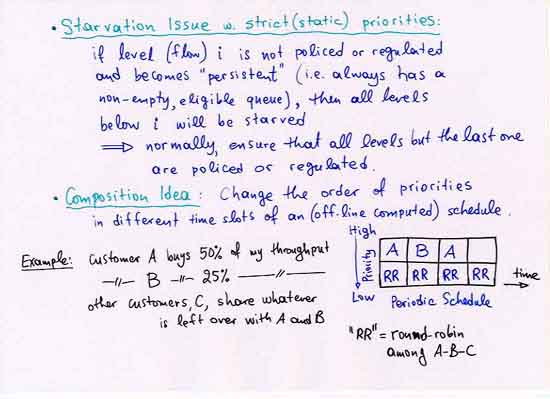 • Starvation Issue w. strict (static) priorities:
if level (flow) i is not policed or regulated
and becomes "persistent" (i.e. always has a
non-empty, eligible queue), then all levels
below i will be starved
⟹ normally, ensure that all levels but the last one
are policed or regulated.
• Composition Idea: Change the order of priorities
in different time slots of an (off-line computed) schedule.
Example: Customer A buys 50% of my throughput
—〃— B —〃— 25% —〃—
other customers, C, share whatever
is left over with A and B
High
Priority
Low
A B A
RR RR RR RR
time
Periodic Schedule
"RR" = round-robin
among A-B-C